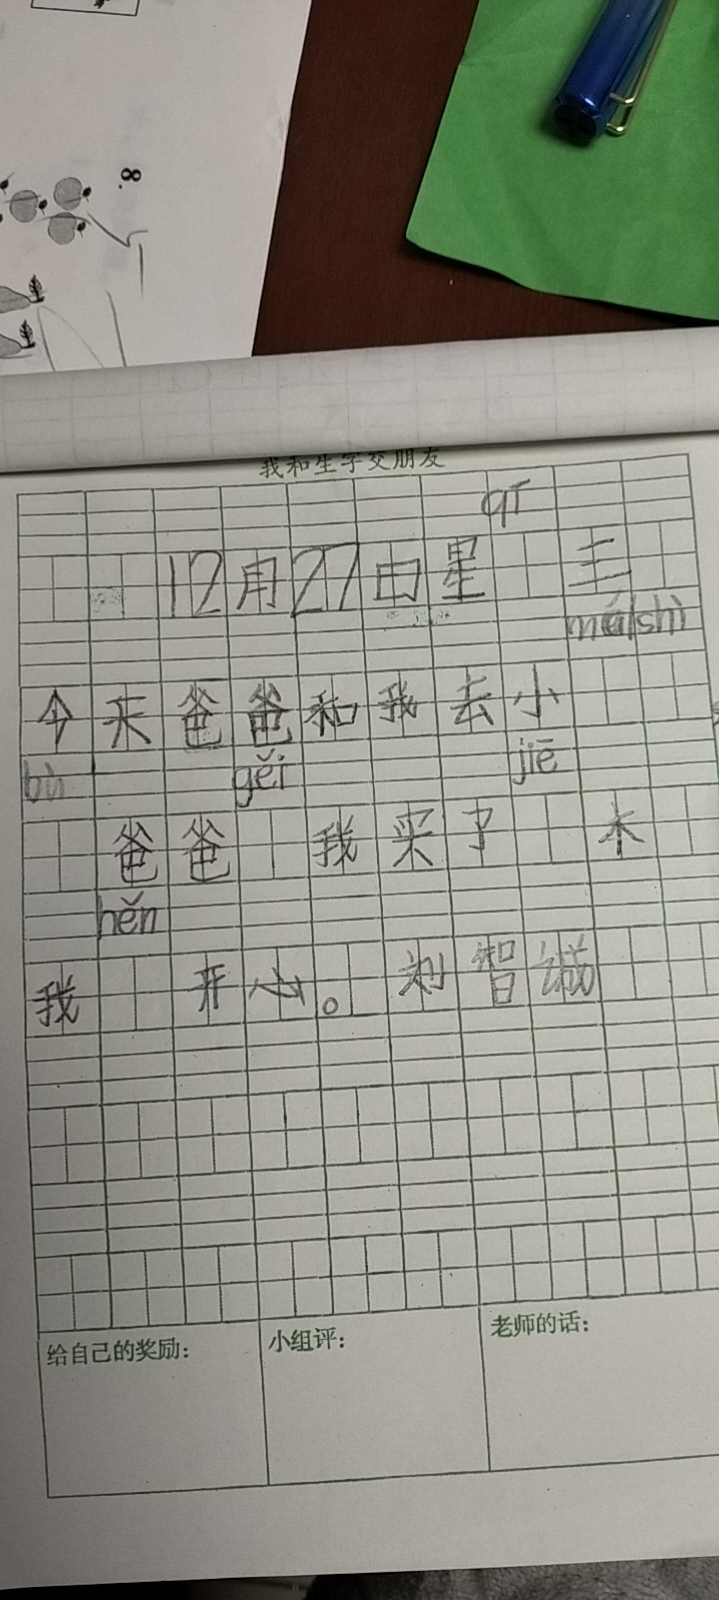 8.
我和生字交朋友
qī
12月27日星 三
mài shì
今天爸爸和我去小
bù gěi jiē
爸爸 我买了 木
hěn
我 开心。 刘智诚
给自己的奖励:
小组评:
老师的话: